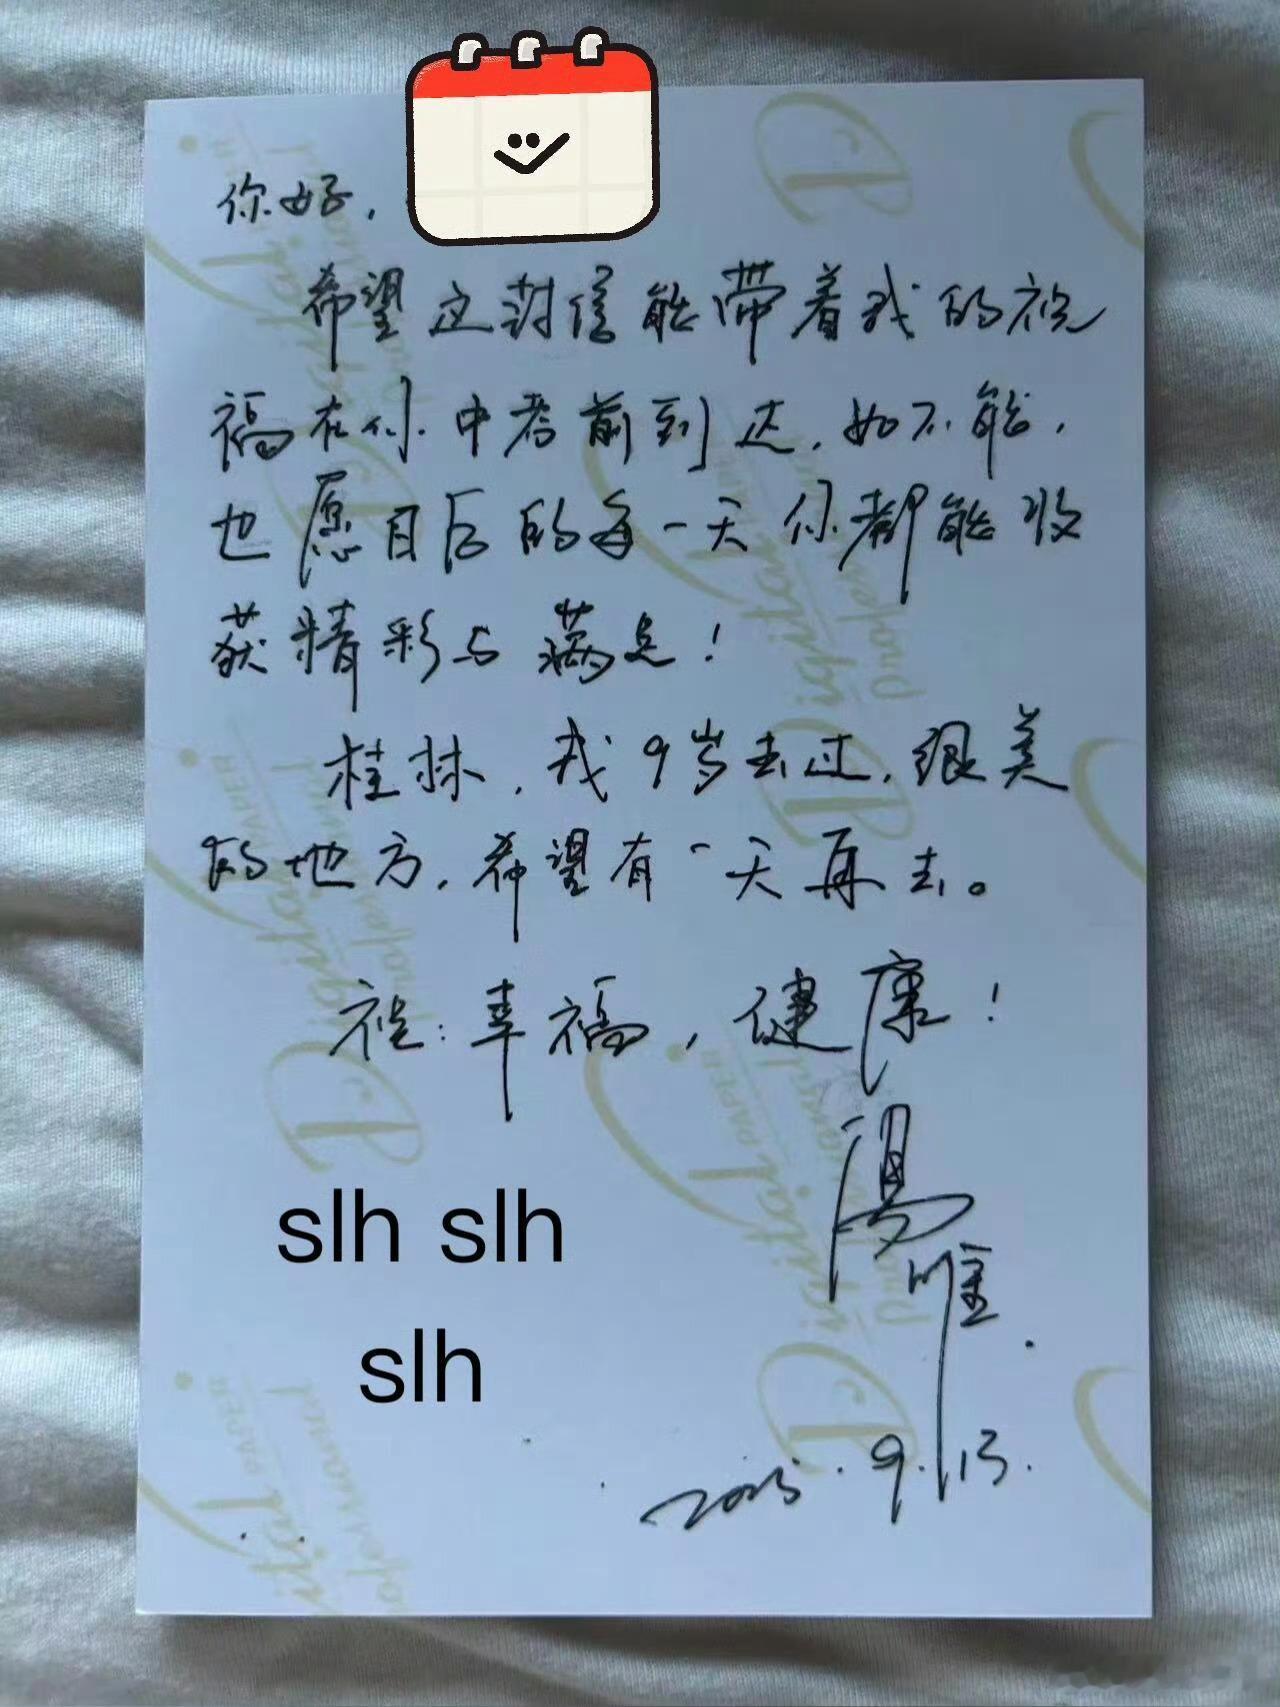 你好，
希望这封信能带着我的祝
福在你中考前到达，如不能，
也愿日后的每一天你都能收
获精彩与满足！
桂林，我9岁去过，很美
的地方，希望有一天再去。
祝：幸福，健康！
湯
唯
slh slh
slh
2025.9.13.
Digital
PAPER
Professional